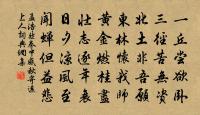 一丘嘗欲臥
三徑苦無資
北土非吾願
東林懷我師
黃金燃桂盡
壯志逐年衰
日夕涼風至
聞蟬但益悲
孟浩然秦中感秋寄遠
上人詞典網集